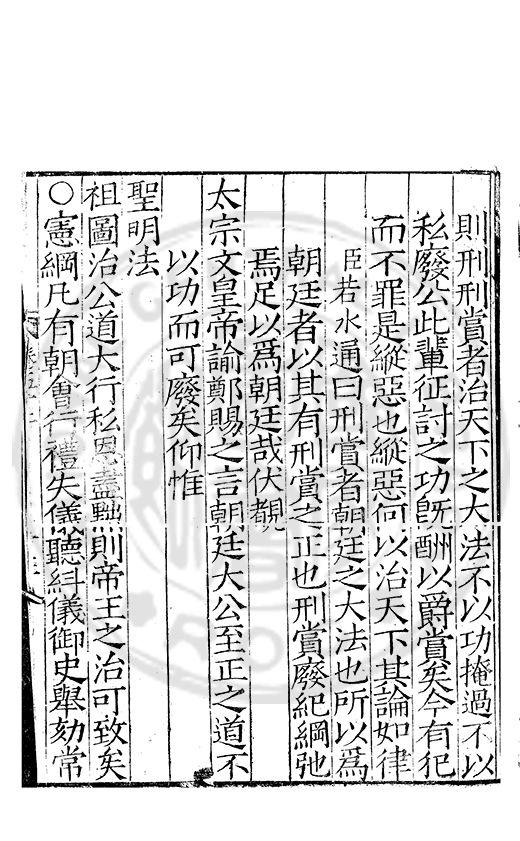 則刑刑賞者治天下之大法不以功掩過不以
私廢公此輩征討之功旣酬以爵賞矣今有犯
而不罪是縱惡也縱惡何以治天下其論如律
臣若水通曰刑賞者朝廷之大法也所以爲
朝廷者以其有刑賞之正也刑賞廢紀綱弛
焉足以爲朝廷哉伏覩
太宗文皇帝諭鄭賜之言朝廷大公至正之道不
以功而可廢矣仰惟
聖明法
祖圖治公道大行私恩盡黜則帝王之治可致矣
○憲綱凡有朝會行禮失儀聽糾儀御史舉劾常